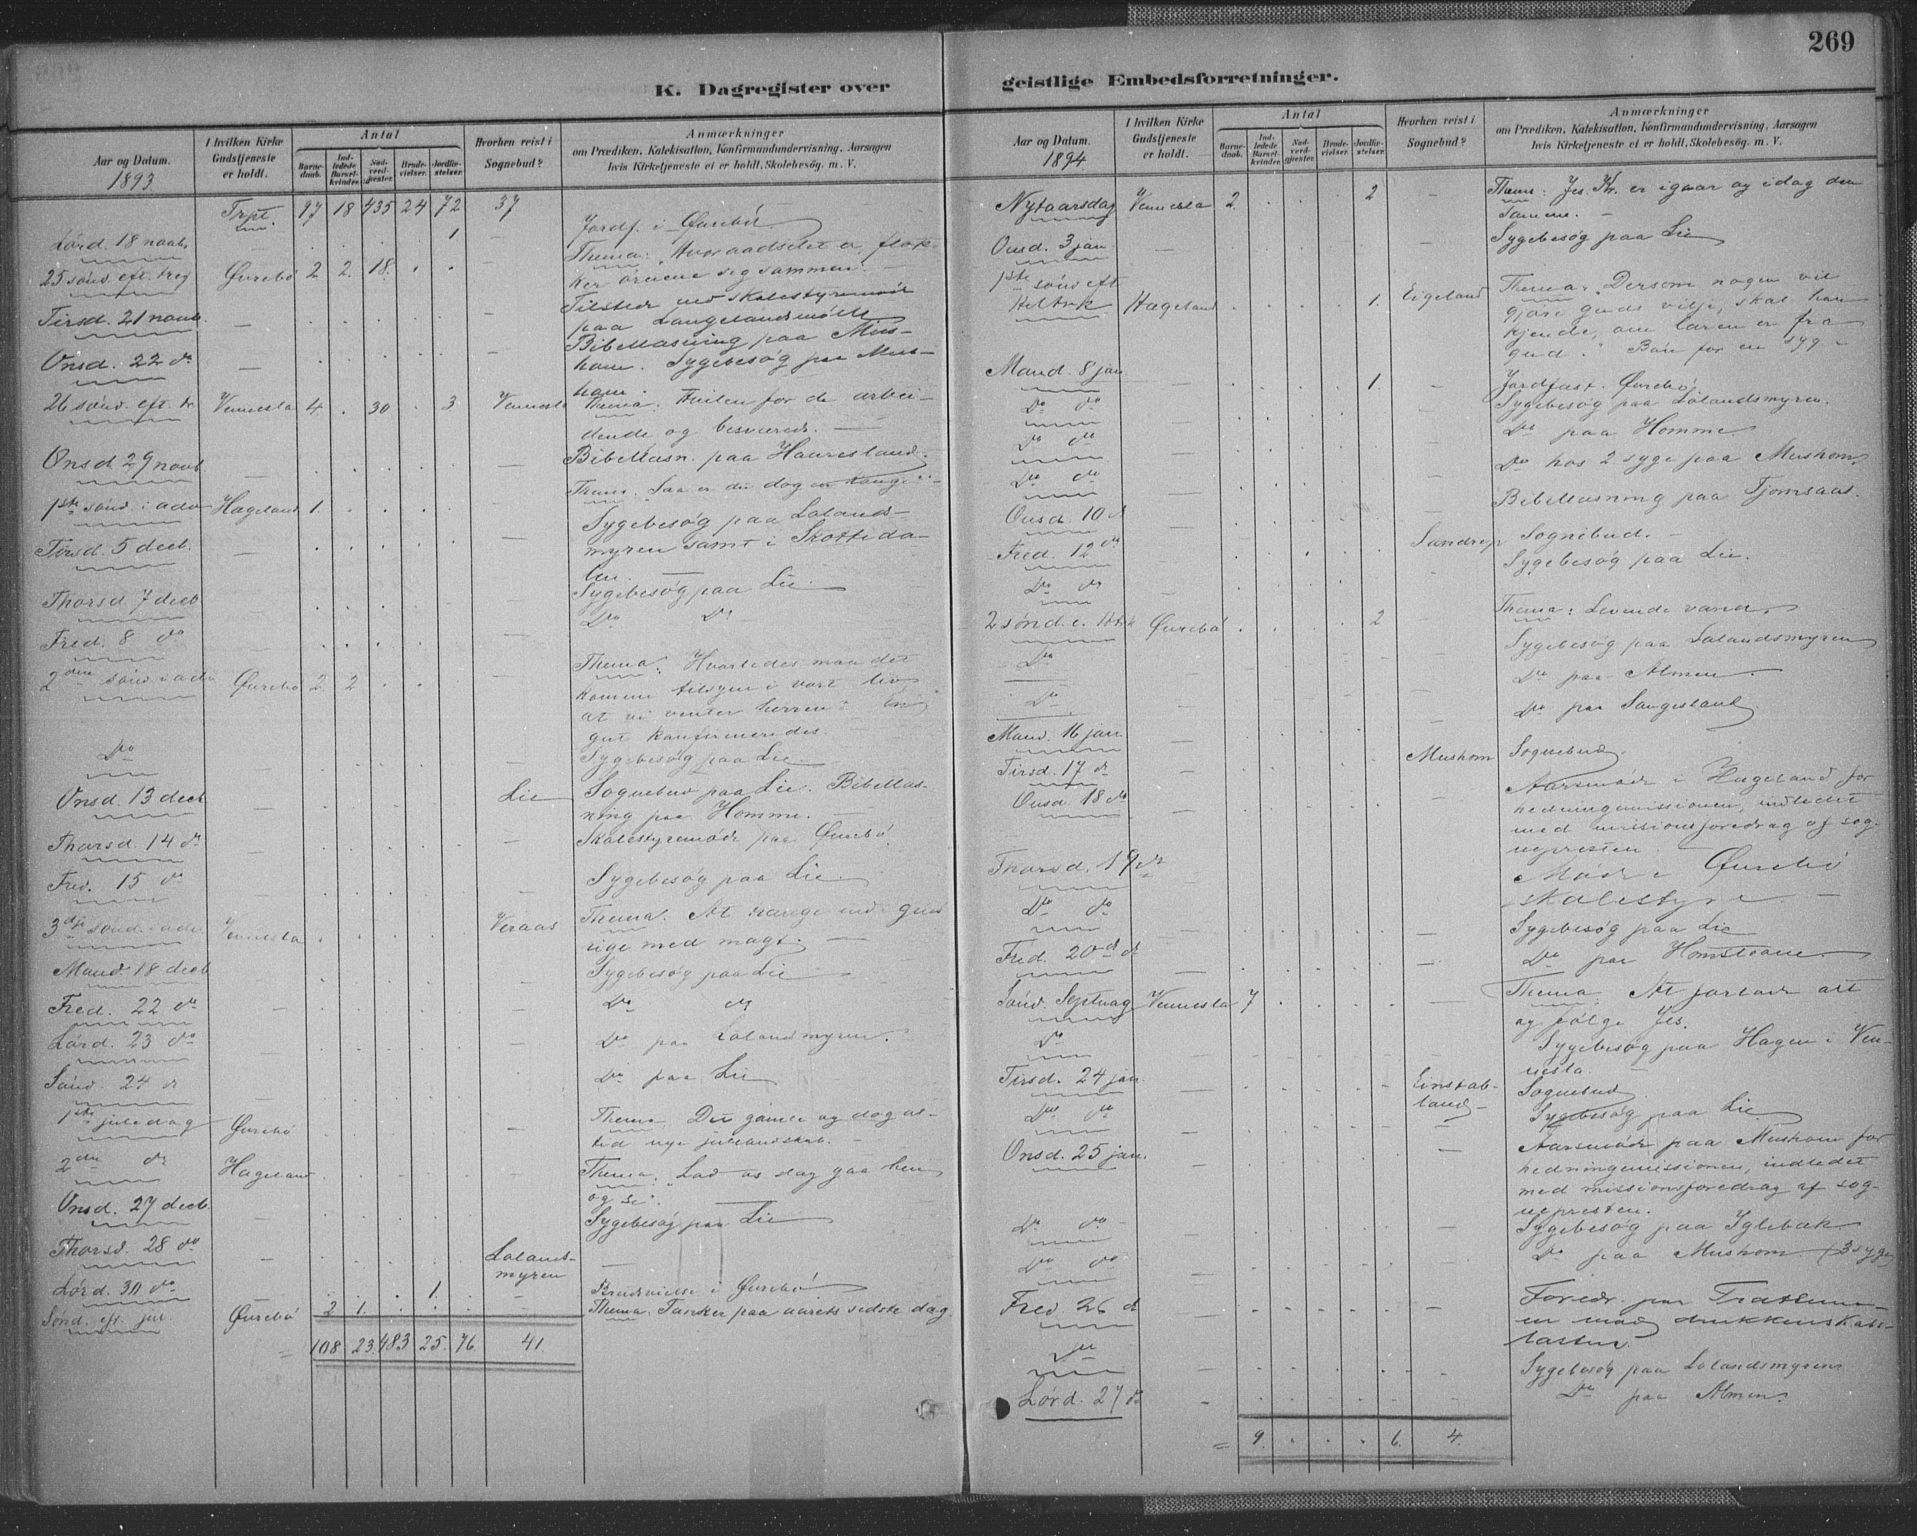 269
K. Dagregister over geistlige Embedsforretninger.
Aar og Datum.
1893
I hvilken Kirke Gudstjeneste er holdt.
Antal
Barnedaab.
Indledede Barselkvinder.
Nadverdgjester.
Brudevielser.
Jordfæstelser.
Hvorhen reist i Sognebud?
Anmærkninger
om Prædiken, Katekisation, Konfirmandundervisning, Aarsagen
hvis Kirketjeneste ei er holdt, Skolebesøg. m. V.
Trpt. 97 18 435 24 72 37
Lørd. 18 novb. 1 Jordf. i Øvrebø
25 sønd. eft. treg Øvrebø 2 2 18. Thema: Hvor aadselet er, flok-
ker ørnene sig sammen.
Tirsd. 21 novb. Tilsted ved skolestyremøde
paa Langelandsmoen
Onsd. 22 do Bibellæsning paa Mus-
hom. Sygebesøg paa Mus-
hom.
26 sønd. eft. tr Vennesla 4. 30 3 Vennesla Thema: Hvilen for de arbei-
dende og besværede.
Onsd 29 novb. Bibellæsn. paa Haaresland.
1ste sønd. i adv Hægeland 1. Thema: Saa er du dog en konge
Tirsd. 5 decb. Sygebesøg paa Lolands-
myren samt i Skotteda-
len.
Thorsd 7 decb Sygebesøg paa Lie.
Fred. 8 do Do Do
2den sønd. i adv Øvrebø 2 2 Thema: Hvorledes maa det
komme tilsyne i vort liv
at vi venter herren?
gut konfirmeredes.
Do Sygebesøg paa Lie.
Onsd. 13 decb. Lie Sognebud paa Lie. Bibellæs-
ning paa Homme.
Thorsd. 14 do Skolestyremøde paa Øvrebø
Fred. 15 do Sygebesøg paa Lie.
3die sønd. i adv Vennesla Veraas Thema. At trænge ind i guds
rige med magt.
Mand 18 decb Sygebesøg paa Lie
Fred. 22 do Do do
Lørd. 23 do Do paa Lolandsmyren.
Sønd. 24 do Do paa Lie
1ste juledag Øvrebø Thema. Det gamle og dog al-
tid nye julebudskab.
2den do Hægeland Thema. "Lad os dog gaa hen
og se".
Onsd. 27 decb. Sygebesøg paa Lie
Thorsd. 28 do Lolands-
myren
Lørd. 30 do 1. Brudevielse i Øvrebø
Sønd. eft. jul Øvrebø 2 1. Thema. Tanker paa aarets sidste dag.
= 108 23 483 25. 76. 41.
Aar og Datum.
1894
I hvilken Kirke Gudstjeneste er holdt.
Antal
Barnedaab.
Indledede Barselkvinder.
Nadverdgjester.
Brudevielser.
Jordfæstelser.
Hvorhen reist i Sognebud?
Anmærkninger
om Prædiken, Katekisation, Konfirmandundervisning, Aarsagen
hvis Kirketjeneste et er holdt, Skolebesøg. m. V.
Nytaarsdag Vennesla 2. 2 Thema: Jes. Kr. er igaar og idag den
samme.
Onsd. 3 jan Sygebesøg paa Lie
1ste sønd eft
Hel3k Hægeland 1. Eigeland Thema: "Dersom nogen vil
gjøre guds vilje, skal han
kjende, om læren er fra
gud." Bøn for en syg
Mand. 8 jan 1. Jordfæst. Øvrebø
Do do Sygebesøg paa Lolandsmyren.
Do do Do paa Homme
Do do Do hos 2 syge paa Mushom.
Onsd. 10 d Bibellæsning paa Tjomsaas.
Fred. 12 do Sognebud.
Do do Sygebesøg paa Lie.
2 sønd e. H3k Øvrebø 2 Thema: Levende vand.
Do Sygebesøg paa Lolandsmyren
Do Do paa Almen.
Mand. 16 jan Do paa Sangesland
Tirsd. 17 d Mushom Sognebud.
Onsd 18 do Aarsmøde i Hægeland for
hedningemissionen, indledet
med missionsforedrag af sog-
nepresten
Thorsd. 19 do Møde i Øvrebø
skolestyre
Do do Sygebesøg paa Lie
Fred. 20 d Do paa Homstøane
Sønd. Septuag Vennesla 7 Thema: At forlade alt
og følge Jes.
Do Sygebesøg paa Hagen i Ven-
nesla.
Tirsd. 24 jan. Einstab-
land Sognebud
Do do Sygebesøg paa Lie
Onsd. 25 jan. Aarsmøde paa Mushom for
hedningemissionen, indledet
med missionsforedrag af sog-
nepresten.
Do do Sygebesøg paa Iglebæk
Do do Do paa Mushom (3 syge)
Fred. 26 d Foredr. paa
en mod drukkenskabs-
lasten.
Do Sygebesøg paa Lolandsmyren
Lørd. 27 d Do paa Almen
= 9. 6. 4.